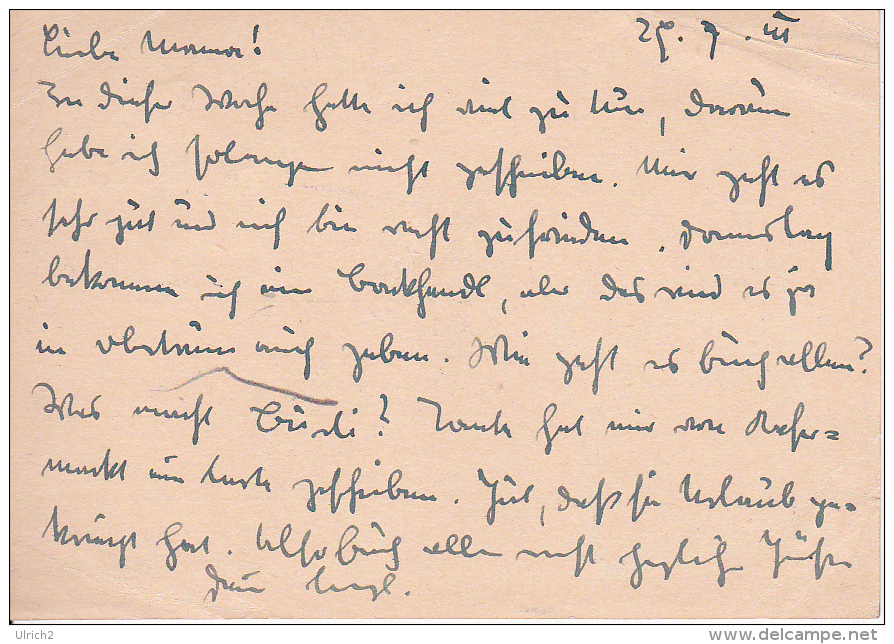 Liebe Mama! 29. 7. III
In dieser Woche hatte ich viel zu tun, darum
habe ich solange nicht geschrieben. Mir geht es
sehr gut und ich bin recht zufrieden. Samstag
bekommen ich ein Backhendl, aber das wird es ja
in auch geben. Wie geht es Euch allen?
Was macht ? Tante hat mir von
markt eine Karte geschrieben. Gut, daß sie Urlaub ge=
kriegt hat. Also Euch allen recht herzliche Grüße
Dein
Ulrich2
http://www.delcampe.net